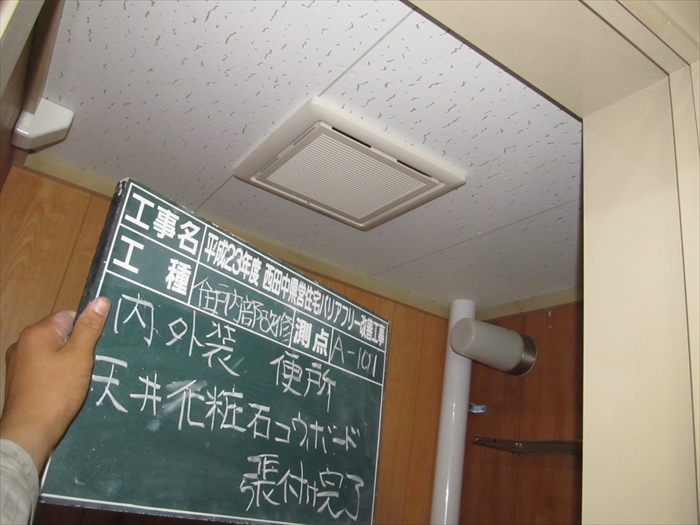 工事名 平成23年度 西田中県営住宅バリアフリー改善工事
工種 住戸内部改修 測点 A-101
内外装 便所
天井化粧石コウボード
張付け完了